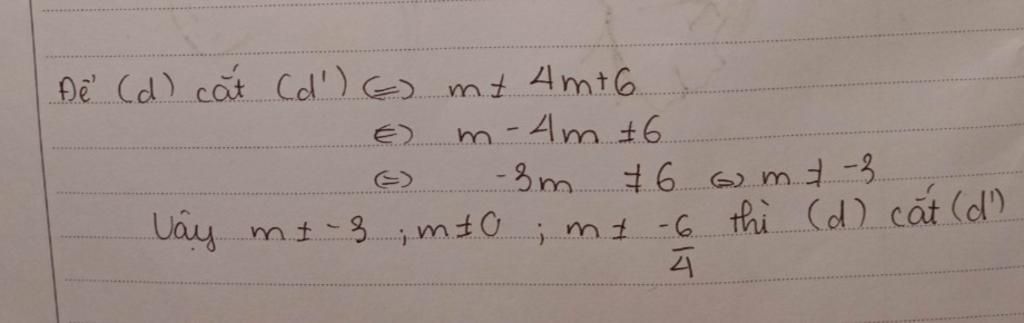 Để (d) cắt (d') ⇔ m ≠ 4m+6
⇔ m - 4m ≠ 6
⇔ -3m ≠ 6 ⇔ m ≠ -3
Vậy m ≠ -3 ; m ≠ 0 ; m ≠ -6/4 thì (d) cắt (d')